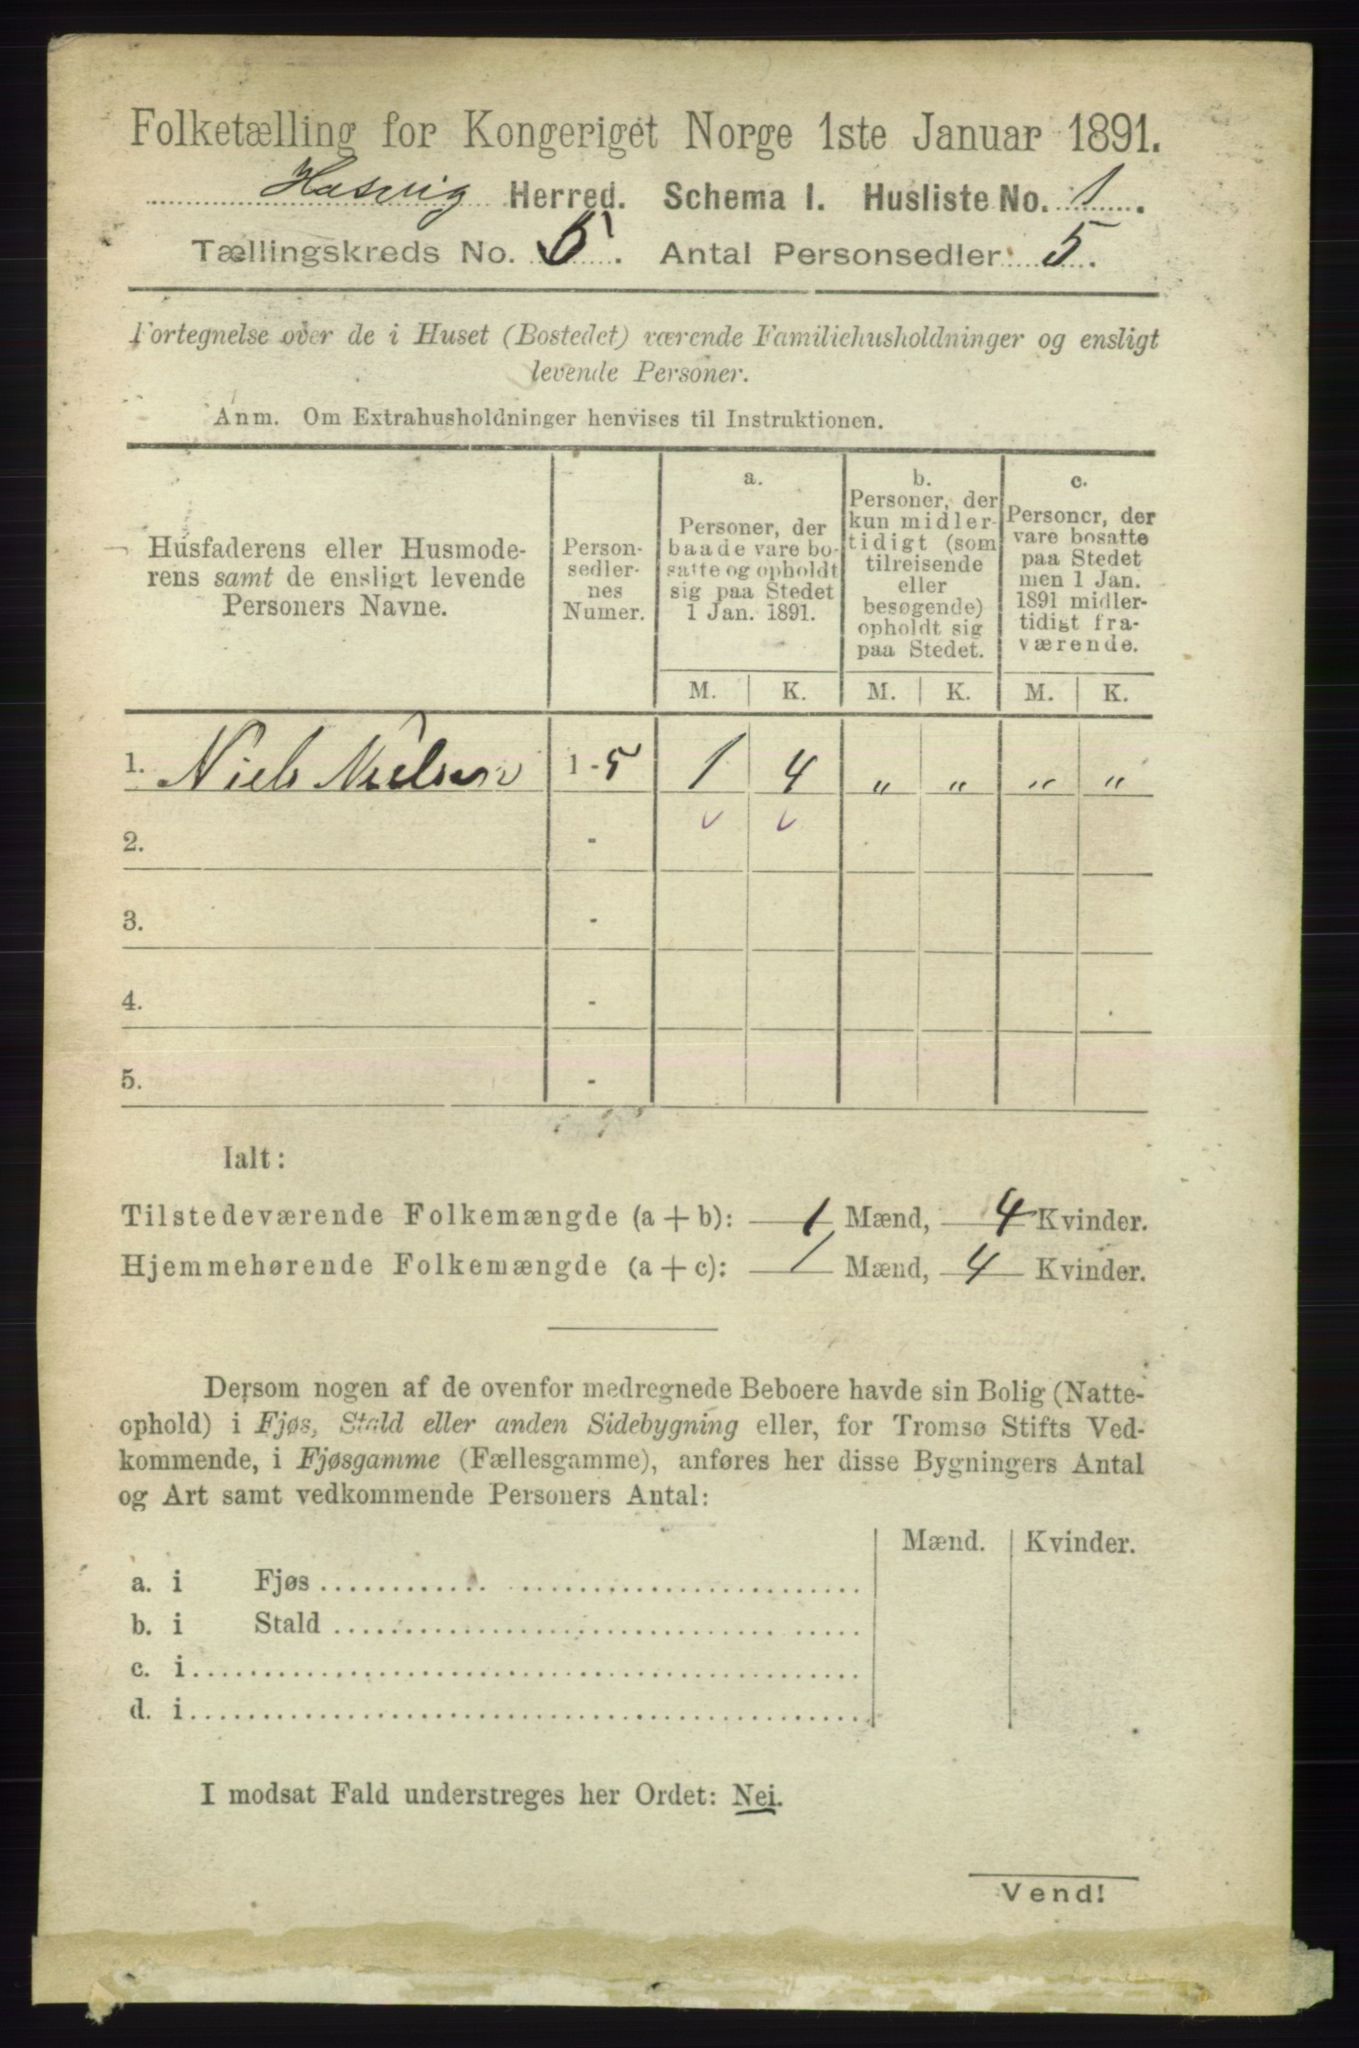 Folketælling for Kongeriget Norge 1ste Januar 1891.
Hasvig Herred. Schema I. Husliste No. 1.
Tællingskreds No. 5. Antal Personsedler 5.
Fortegnelse over de i Huset (Bostedet) værende Familiehusholdninger og ensligt
levende Personer.
Anm. Om Extrahusholdninger henvises til Instruktionen.
Husfaderens eller Husmode-
rens samt de ensligt levende
Personers Navne.
Person-
sedler-
nes
Numer.
a.
Personer, der
baade vare bo-
satte og opholdt
sig paa Stedet
1 Jan. 1891.
b.
Personer, der
kun midler-
tidigt (som
tilreisende
eller
besøgende)
opholdt sig
paa Stedet.
c.
Personer, der
vare bosatte
paa Stedet
men 1 Jan.
1891 midler-
tidigt fra-
værende.
M. K. M. K. M. K.
1. Niels Nielsen 1-5 1 4 „ „ „ „
2. -
3. -
4. -
5. -
Ialt:
Tilstedeværende Folkemængde (a+b): 1 Mænd, 4 Kvinder.
Hjemmehørende Folkemængde (a+c): 1 Mænd, 4 Kvinder.
Dersom nogen af de ovenfor medregnede Beboere havde sin Bolig (Natte-
ophold) i Fjøs, Stald eller anden Sidebygning eller, for Tromsø Stifts Ved-
kommende, i Fjøsgamme (Fællesgamme), anføres her disse Bygningers Antal
og Art samt vedkommende Personers Antal:
Mænd. Kvinder.
a. i Fjøs
b. i Stald
c. i
d. i
I modsat Fald understreges her Ordet: Nei.
Vend!